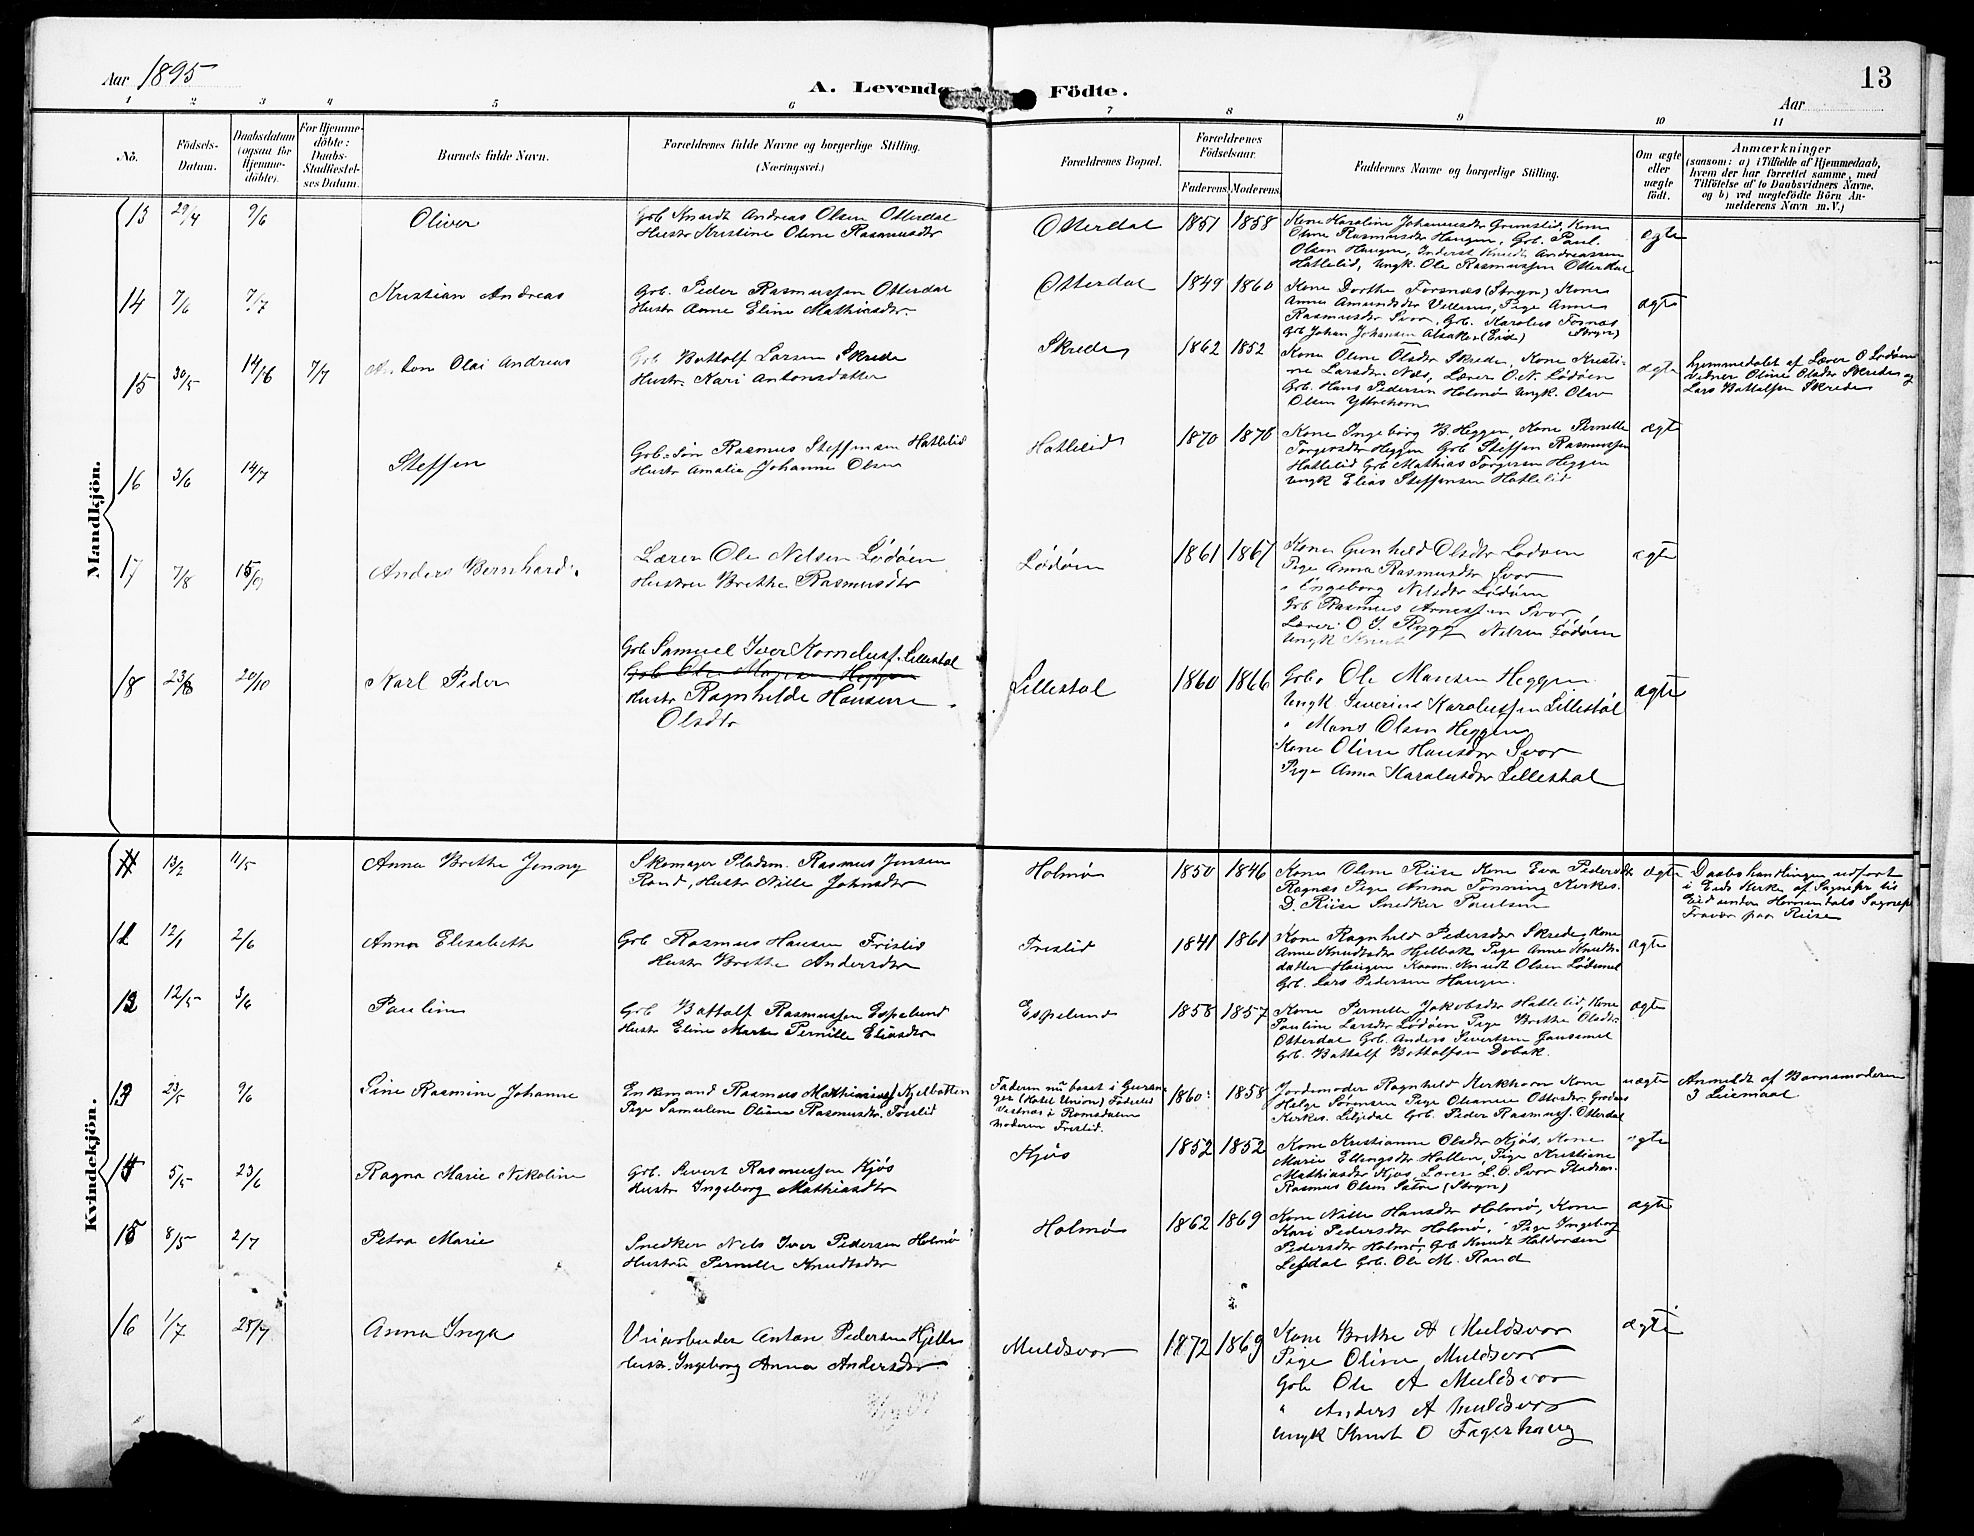 Aar 1895
A. Levende Födte.
13
Aar
1 2 3 4 5 6 7 8 9 10 11
No.
Födsels-Datum.
Daabsdatum (ogsaa for Hjemme-döbte).
For Hjemme-döbte: Daabs-Stadfæstel-ses Datum.
Barnets fulde Navn.
Forældrenes fulde Navne og borgerlige Stilling. (Næringsvei.)
Forældrenes Bopæl.
Forældrenes Födselsaar.
Faderens. Moderens.
Faddernes Navne og borgerlige Stilling.
Om ægte eller uægte födt.
Anmærkninger
(saasom: a) i Tilfælde af Hjemmedaab,
hvem der har forrettet samme, med
Tilföielse af to Daabsvidners Navne,
og b) ved uægtefödte Börn An-
melderens Navn m.V.)
Mandkjön.
13 29/4 9/6 Oliver
Gbr Knudt Andreas Olsen Otterdal
Hustr Kristine Oline Rasmusdtr
Otterdal 1851 1858
Kone Karoline Johannesdtr Grimstid, Kone
Oline Rasmusdtr Haugen, Gbr. Paul.
Olsen Haugen, Inderst Knudt Andreassen
Hatlelid, Ungk. Ole Rasmussen Otterdal
ægte
14 7/6 7/7 Kristian Andreas
Gbr. Peder Rasmussen Otterdal
Hustr Anne Eline Mathiasdtr.
Otterdal 1849 1860
Kone Dorthe Forsnæs (Stryn) Kone
Anne Amundsdtr Vellene, Pige Anne
Rasmusdtr Svor, Gbr. Karolus Fornæs
Gbr Johan Johansen Alsaker (Eide) Stryn)
ægte
15 30/5 14/6 7/7 Anton Olai Andreas
Gbr Bottolf Larsen Skrede
Hustr. Kari Antonsdatter
Skrede 1862 1852
Kone Oline Olsdtr Skrede, Kone Kristi-
ne Larsdtr. Nes, Lærer O. N. Lödöen
Gbr. Hans Pedersen Holmö Ungk. Olav
Olsen Yttrehorn
ægte
hjemmedøbt af Lærer O Lödöen
Vidner Oline Olsdtr Skrede og
Lars Bottolfsen Skrede
16 3/6 14/7 Steffen
Gbr. Sön Rasmus Steffensen Hatlelid
Hustr Amalia Johanne Olsen
Hatlelid 1870 1870
Kone Ingeborg B. Heggen, Kone Pernille
Torgersdtr Heggen Gbr Steffen Rasmussen
Hatlelid Gbr Mathias Torgersen Heggen
Ungk Elias Steffensen Hatlelid
ægte
17 7/8 15/9 Anders Bernhard
Lærer Ole Nelsen Lödöen
Hustru Brethe Rasmusdtr
Lödöen 1861 1867
Kone Gunhild Olsdtr Lodoen
Pige Anna Rasmusdtr Svor
" Engeborg Nelsdtr Lödöen
Gbr Rasmus Arnessen Svor
Lærer O. J. Rygg
Ungk Knut Nelsen Lödöen
ægte
18 23/8 20/10 Karl Peder
Gbr Samuel Iver Kornelius. Lillestöl
Gbr Ole Monsen Heggen
Hustr Ragnhilde Hansine
Olsdtr
Lillestöl 1860 1866
Gbr. Ole Monsen Heggen
Ungk Severins Karolussen Lillestöl
" Mons Olsen Heggen
Kone Oline Hansdtr Svor
Pige Anna Karolusdtr Lillestöl
ægte
Kvindekjön.
11 13/2 11/5 Anna Brethe Jenny
Skomager Pladsm. Rasmus Jensen
Rand, Hustr Nille Johnsdtr
Holmö 1850 1846
Kone Oline Riise Kone Eva Pedersdtr
Ragnæs Pige Anna Tonning Kirkes.
D. Riise Snedker Paulsen
ægte
Daabshandlingen udfört
i Eids Kirke af Sognepr til
Eid under Hornindals Sognepr
Fravær paa Reise
12 12/1 2/6 Anna Elisabeth
Gbr Rasmus Hansen Fristid
Hustr Brethe Andersdtr
Fristid 1841 1861
Kone Ragnhild Pedersdtr Skrede, Kone
Anne Knudtsdtr Hjelbak Pige Anne Knudts-
datter Haugen Knudt Olsen Lödemel
Gbr. Lars Pedersen Haugen.
ægte
12 12/5 3/6 Pauline
Gbr Bottolf Rasmussen Espelund
Hustr Eline Marte Pernille Eliasdtr
Espelund 1858 1857
Kone Pernille Jakobsdtr Hatlelid, Kone
Pauline Larsdtr Lödöen Pige Brethe Olsdtr.
Otterdal Gbr. Anders Sivertsen Gausemel
Gbr. Bottolf Bottolfsen Dobak.
ægte
13 23/5 9/6 Sine Rasmine Johanne
Enkemand Rasmus Mathiasas. Kjelbotten
Pige Samuline Oline Rasmusdtr. Fristid
Faderen nu bosat i Geiran-
ger (Hotel Union) Födested
Vestnæs i Romsdalen
Moderen Fristid.
1860 1858
Jordemoder Ragnhild Kirkhorn Kone
Helge Sörensen Pige Oleanne Ottesdtr. Grodaas
Kirkes. Leijedal Gbr. Peder Rasmuss. Otterdal
uægte
Anmeldt af Barnemoderen
3 Leiermaal
14 5/5 23/6 Ragna Marie Nikoline
Gbr. Sivert Rasmussen Kjös
Hustr Ingeborg Mathiasdtr
Kjös 1852 1852
Kone Kristianne Olsdtr Kjös, Kone
Marie Ellingsdtr Hollen, Pige Kristiane
Mathiasdtr Kjös, Lærer L. O. Svor Pladsm.
Rasmus Olsen Sätre (Stryn)
ægte
15 8/5 2/7 Petra Marie
Snedker Nels Iver Pedersen Holmö
Hustru Pernille Knudtsdtr
Holmö 1862 1869
Kone Nille Hansdtr Holmö, Kone
Kari Pedersdtr Holmö, Pige Ingeborg
Pedersdtr Holmö, Gbr Knudt Haldorsen
Leijdal Gbr. Ole M. Rand
ægte
16 1/7 25/7 Anna Inga
Veiarbeider Anton Pedersen Hjelle
Hustr. Ingeborg Anna Andersdtr
Muldsvor 1872 1869
Kone Brethe A Muldsvor
Pige Oline Muldsvor
Gbr Ole A Muldsvor
" Anders A Muldsvor
Ungk Knut O Fagerhaug
ægte